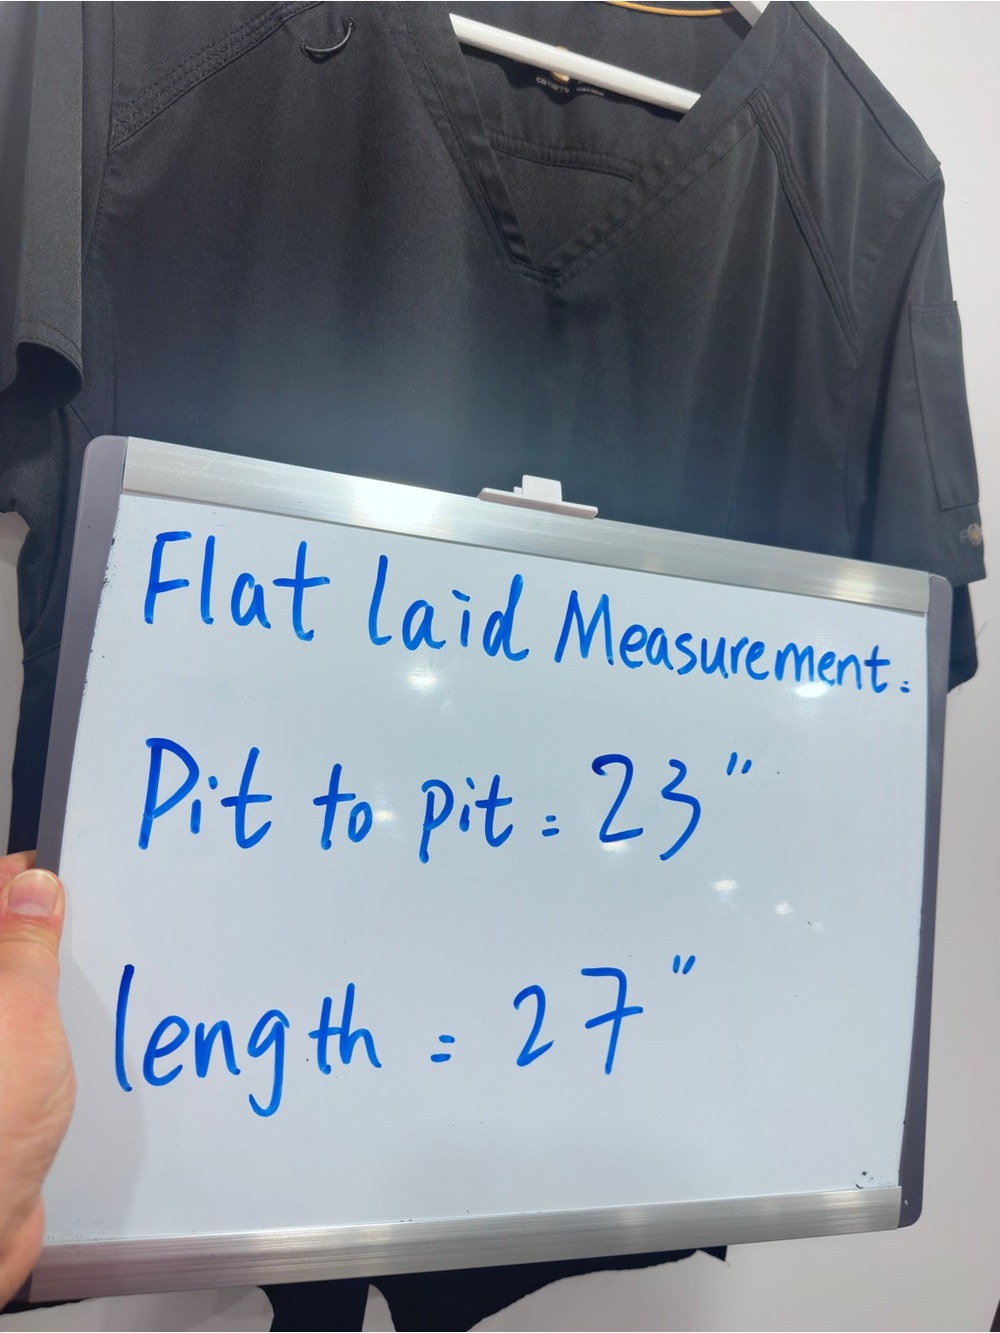 carhartt
Flat laid Measurement:
Pit to pit = 23"
length = 27"